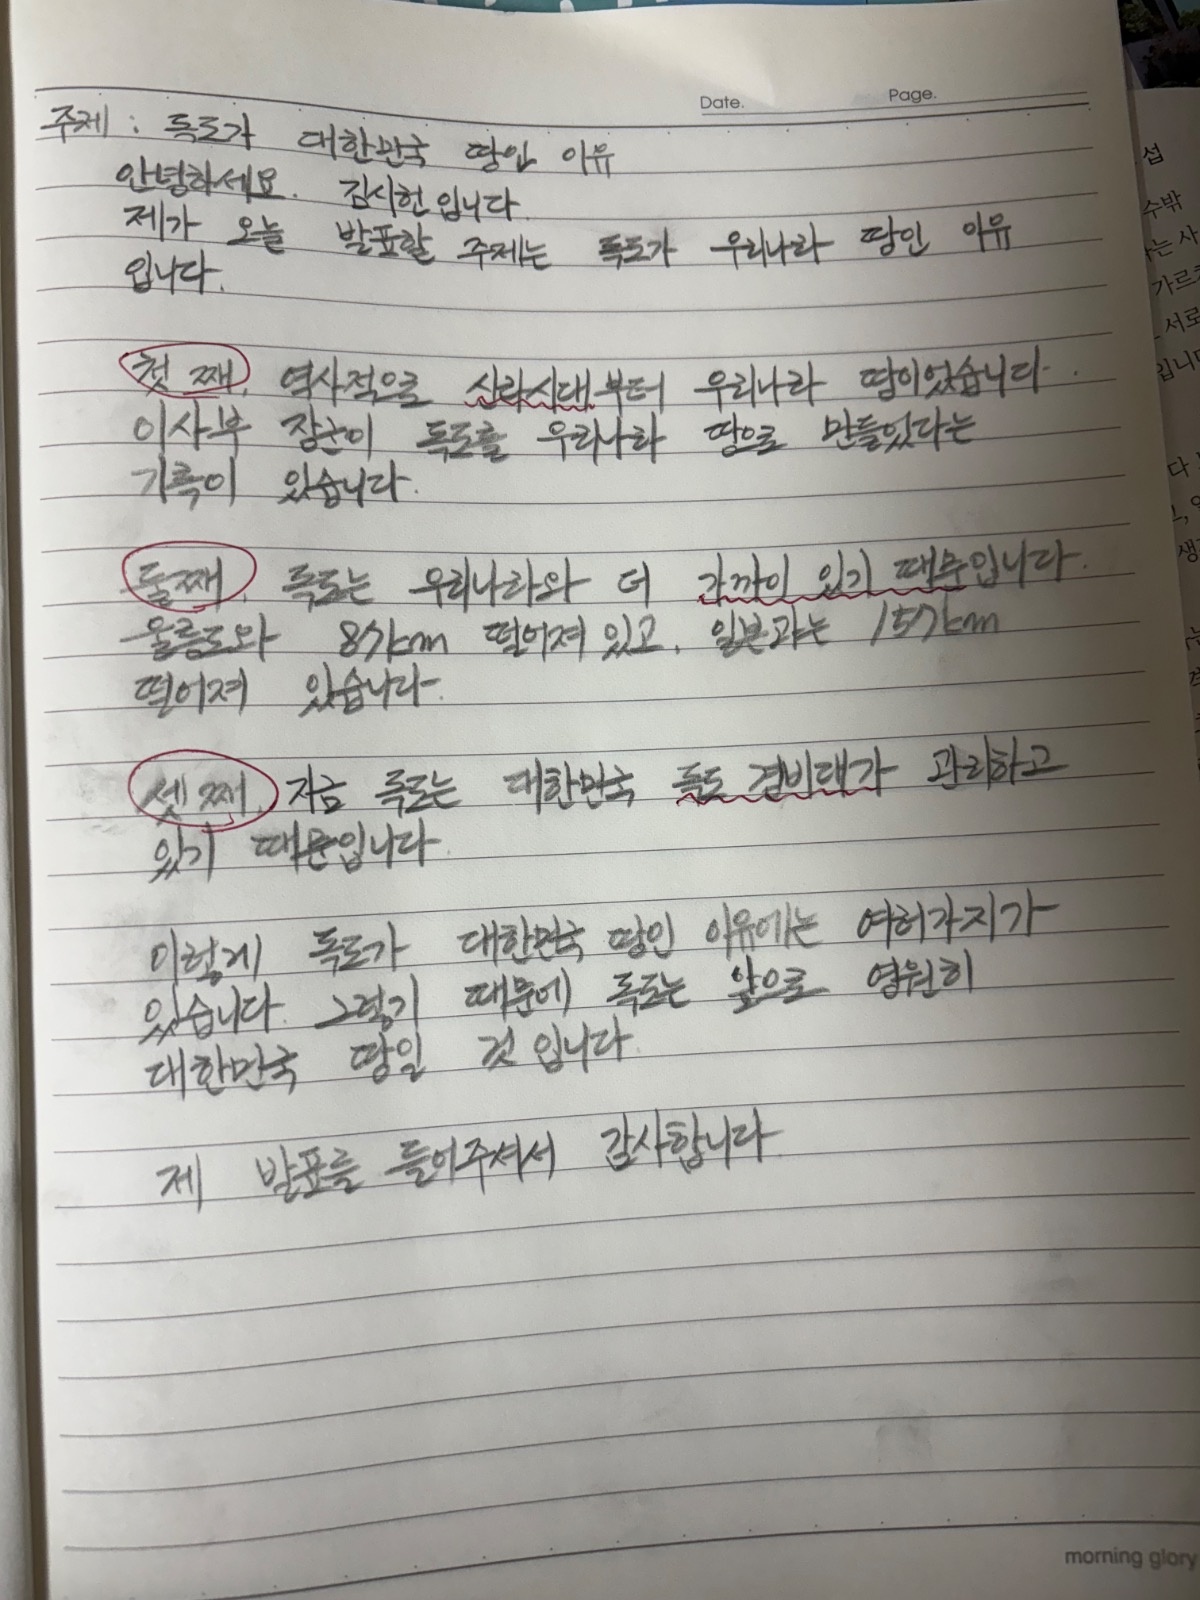 Date.
Page.
주제 : 독도가 대한민국 땅인 이유
안녕하세요. 김시헌입니다.
제가 오늘 발표할 주제는 독도가 우리나라 땅인 이유
입니다.
첫째, 역사적으로 신라시대부터 우리나라 땅이었습니다.
이사부 장군이 독도를 우리나라 땅으로 만들었다는
기록이 있습니다.
둘째, 독도는 우리나라와 더 가까이 있기 때문입니다.
울릉도와 87km 떨어져 있고, 일본과는 157km
떨어져 있습니다.
셋째, 지금 독도는 대한민국 독도 경비대가 관리하고
있기 때문입니다.
이렇게 독도가 대한민국 땅인 이유에는 여러가지가
있습니다. 그렇기 때문에 독도는 앞으로 영원히
대한민국 땅일 것 입니다.
제 발표를 들어주셔서 감사합니다
morning glory
섭
수밖
는 사
가르
서로
입니다